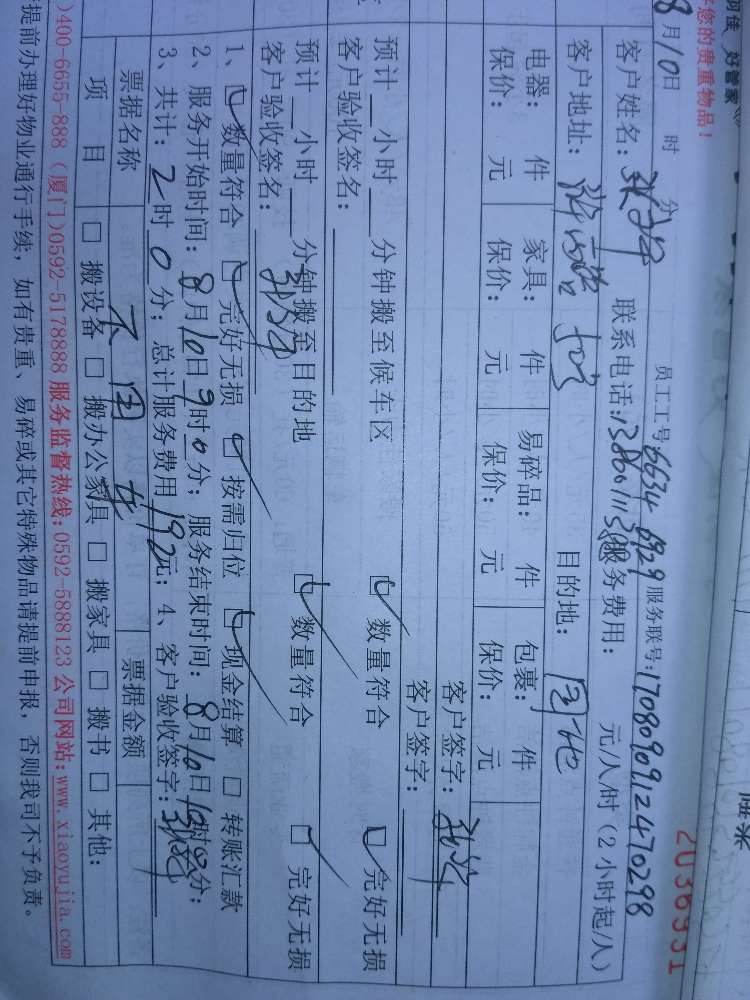 羽佳 好管家
好您的贵重物品！
2036931
8月10日 时 分 员工工号 6634 6929 服务联号:1708090912470298
客户姓名: 联系电话: 服务费用: 元/人/时（2小时起/人）
客户地址: 目的地: 同地
电器: 件 家具: 件 易碎品: 件 包裹: 件
保价: 元 保价: 元 保价: 元 保价: 元
客户签字:
客户签字:
预计__小时__分钟搬至候车区 □数量符合 □完好无损
客户验收签名:
预计__小时__分钟搬至目的地 □数量符合 □完好无损
客户验收签名:
1、□数量符合 □完好无损 □按需归位 □现金结算 □转账汇款
2、服务开始时间: 8月10日9时0分; 服务结束时间: 8月10日 时 分;
3、共计: 2时0分; 总计服务费用192元; 4、客户验收签字:
票据名称 不用 票据金额
项目 □搬设备 □搬办公家具 □搬家具 □搬书 □其他:
)400-6655-888（厦门)0592-5178888 服务监督热线:0592-5888123 公司网站:www.xiaoyujia.com
提前办理好物业通行手续，如有贵重、易碎或其它特殊物品请提前申报，否则我司不予负责。